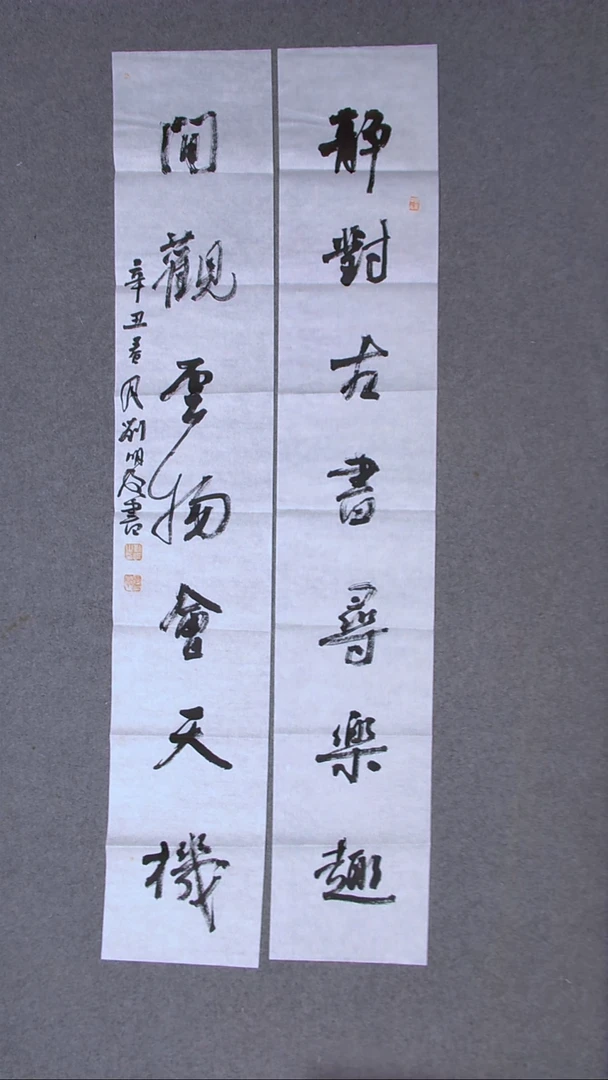 静對古書尋樂趣
間觀雲物會天機
辛丑春月劉明書